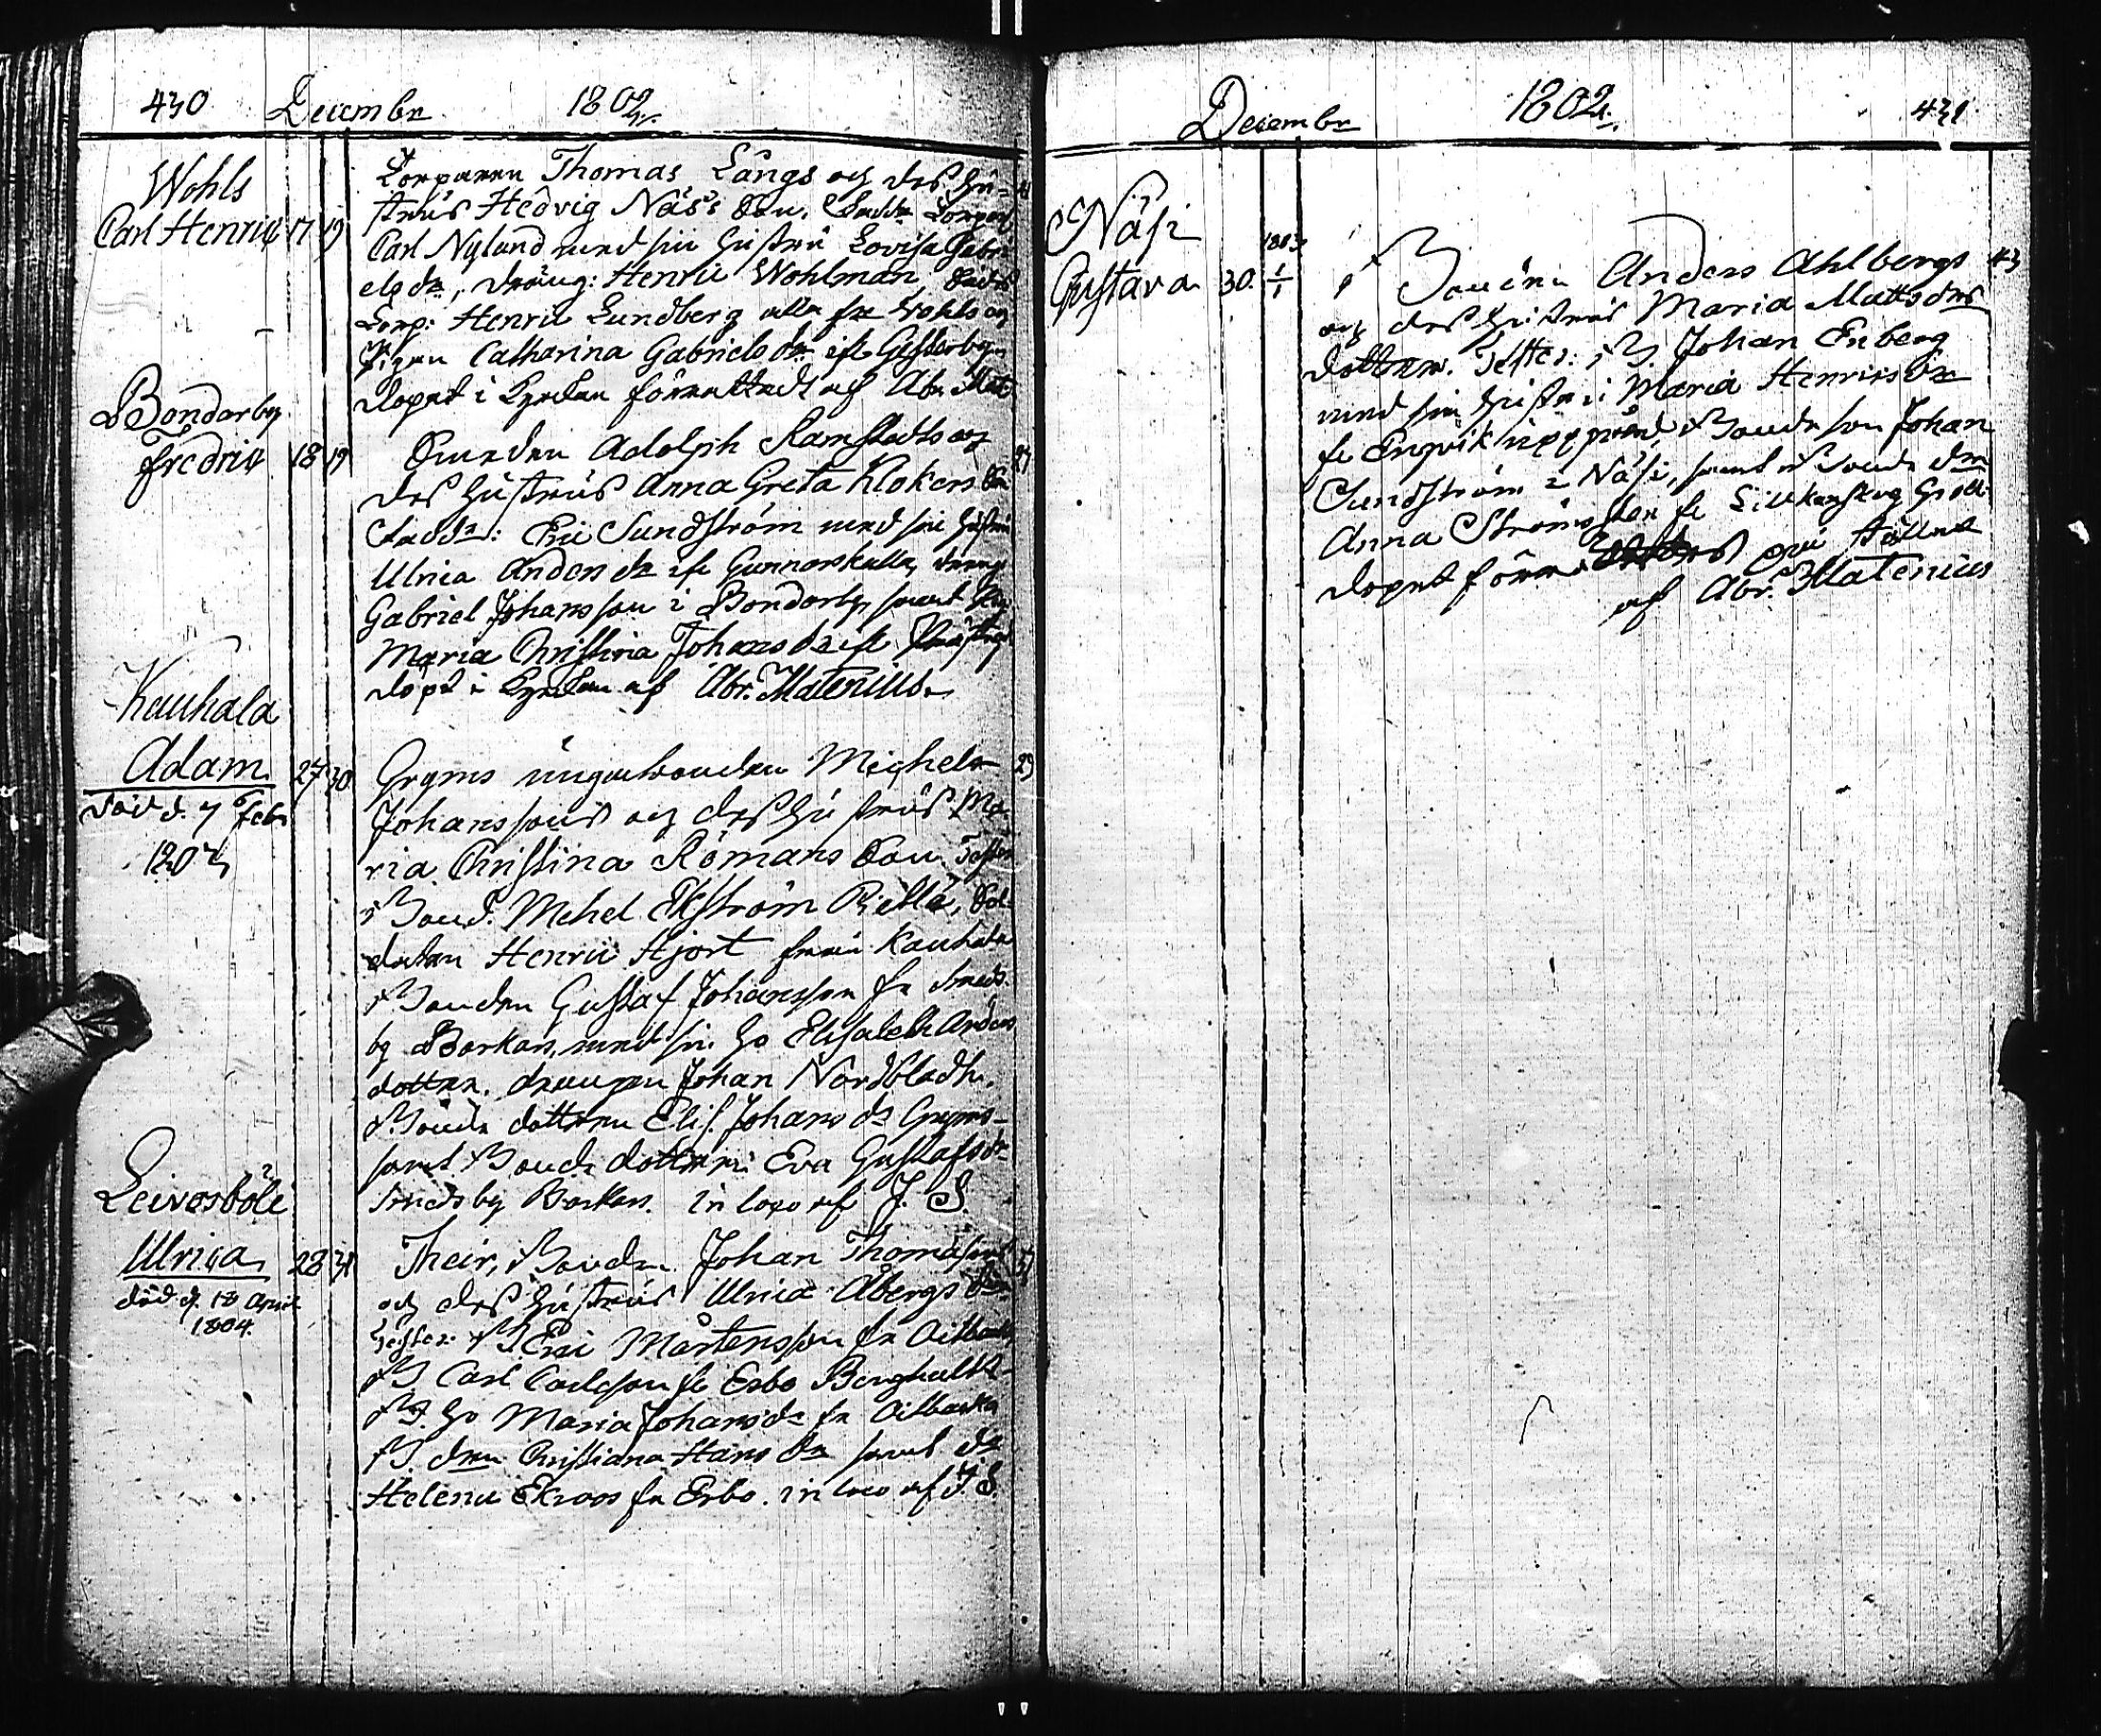 430 Decembr 1802.
Wohls
Carl Henric 17 19
Torparen Thomas Långs och des hu-
strus Hedvig Näs's Son. Fadd: Torpar
Carl Nylund med sin hustru Lovisa Gabri
els dr, dräng: Henric Wohlman,
Torp: Henric Lundberg alla fr Wohls och
Pigan Catharina Gabriels dr ifr Gesterby
Döpet i Kyrkan förrättadt af Abr. Mate
Bondarby
Fredric 18 19
Smeden Adolph Ramstedts och 27
des hustrus Anna Greta Klokers Son
Fadd: Eric Sundström med sin hustru
Ulrica Anders dr ifr Gunnarskulla, dräng
Gabriel Johansson i Bondarby, samt
Maria Christina Johans dr ifr
döpt i Kyrkan af Abr. Matenius.
Kauhala
Adam 27 30
död d. 7 Febr
1803
Gryms ungabonden Michel 29
Johanssons och des hustrus Ma
ria Christina Römans Son Test
Bond. Mchel Ekström Pietilä, Sol-
daten Henric Hjort från Kauhala
Bonden Gustaf Johansson fr Smeds
by Barkars, med sin ho Elisabeth Anders
dotter. drengen Johan Nordbladh.
Bonde dottren Elis. Johans dr Gryms
samt Bonde dottren Eva Gustafs dr
Smedsby Barkars. in loco af J. S.
Leivosböle
Ulrica 28 31
död d. 18 April
1804.
Their, Bonden Johan Thomassons 31
och des hustrus Ulrica Åbergs
Tester B Eric Mårtensson fr Oitbacka
B Carl Carlsson fr Esbo Berghult
B. ho Maria Johans dr fr Oitbacka
B. drn Christiana Hans dr samt dr
Helena Ekroos fr Esbo. in loco af J. S.
Decembr 1802. 431
Näsi
Gustava 30. 1803 1/1
Bondens Anders Ahlbergs 43
och des hustrus Maria Matts drs
dotter. Testes: B. Johan Enberg
med sin hustru Maria Henriks dr
fr Engvik uppgård, Bonde son Johan
Sundström i Näsi, samt Bonde drn
Anna Strömsten fr
Döpet på stället
af Abr. Matenius